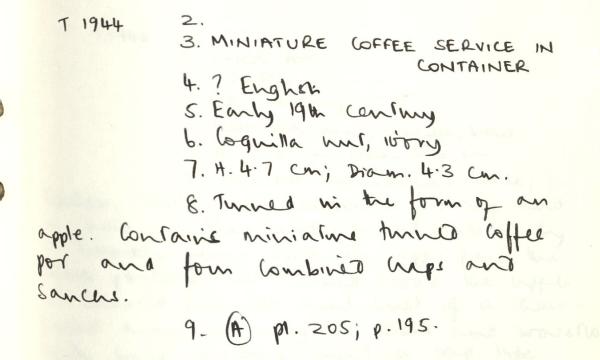 T 1944 2.
3. MINIATURE COFFEE SERVICE IN
CONTAINER
4. ? English
5. Early 19th century
6. Coquilla nut, ivory
7. H. 4.7 cm; Diam. 4.3 cm.
8. Turned in the form of an
apple. Contains miniature turned coffee
pot and four combined cups and
saucers.
9. (A) pl. 205; p. 195.